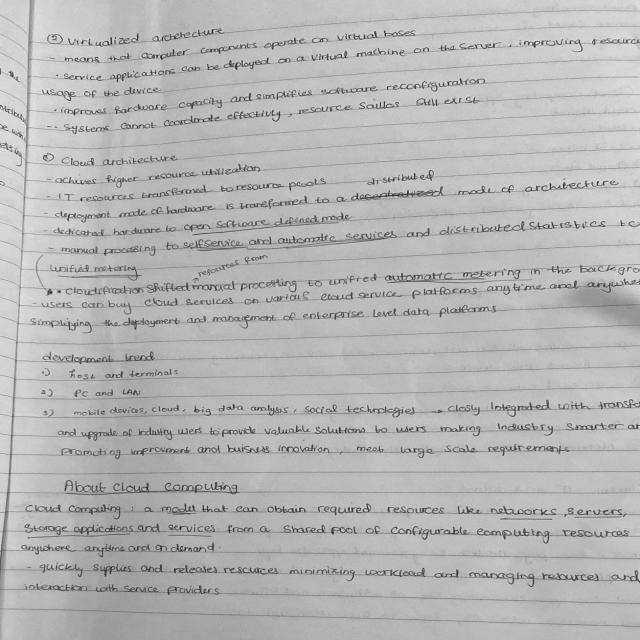 ⑤ Virtualized architecture
- means that computer components operate on virtual bases
- service applications can be deployed on a virtual machine on the server, improving resource
usage of the device
- improves hardware capacity and simplifies software reconfiguration
-- systems cannot coordinate effectivly, resource still exist
⑥ Cloud architecture
- achives higher resource utilization
- IT resources transformed to resource pools
distributed
- deployment mode of hardware is transformed to a decentralized mode of architecture
- dedicated hardware to open software defined mode
- manual processing to selfservice and automatic services and distributed statistics to
unified metering
resources from
• cloudification shifted manual processing to unified automatic metering in the backgro
- users can buy cloud services on various cloud service platforms anytime and anywhere
simplifying the deployment and management of enterprise level data platforms
development trend
1) host and terminals
2) PC and LAN
3) mobile devices, cloud, big data analysis, social technologies → closly integrated with transfo
and upgrade of industry users to provide valuable solutions to users making industry smarter an
promoting improvment and buisness innovation, meet large scale requirements
About Cloud Computing
Cloud computing : a model that can obtain required resources like networks, servers,
storage applications and services from a shared pool of configurable computing resources
anywhere anytime and on demand.
- quickly supplies and releases resources minimizing workload and managing resources and
interaction with service providers